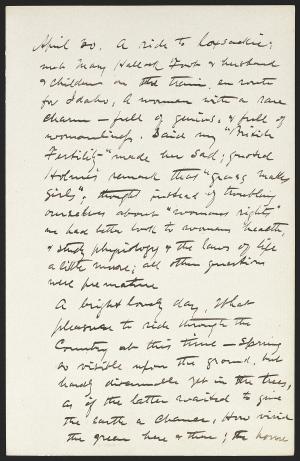 April 30. A ride to Coxsackie;
met Mary Hallock Foote & husband
& children on the train, en route
for Idaho. A woman with a rare
charm — full of genius, & full of
womanliness. Said my "British
Fertility" made her sad; quoted
Holmes remark that "grass makes
girls"; thought instead of troubling
ourselves about "womans rights"
we had better look to womens health,
& study physiology & the laws of life
a little more; all other questions
were premature
A bright lovely day. What
pleasure to ride through the
Country at this time — Spring
so visible upon the ground, but
hardly discernable yet in the trees,
as if the latter waited to give
the earth a chance. How vivid
the green here & there; the horse